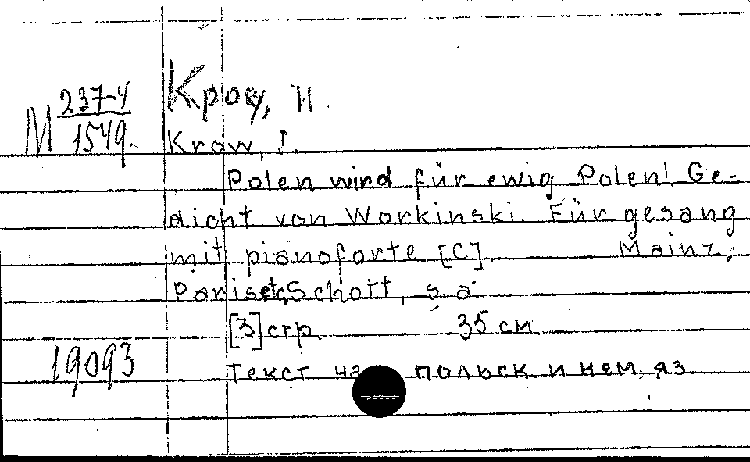 М 237-4
1549.
Кроу, И.
Krow, I.
Polen wird für ewig Polen! Ge-
dicht von Workinski. Für gesang
mit pianoforte [C]. Mainz,
Paris et Schott, s a
[3] стр 35 см
19093
Текст на польск и нем. яз.